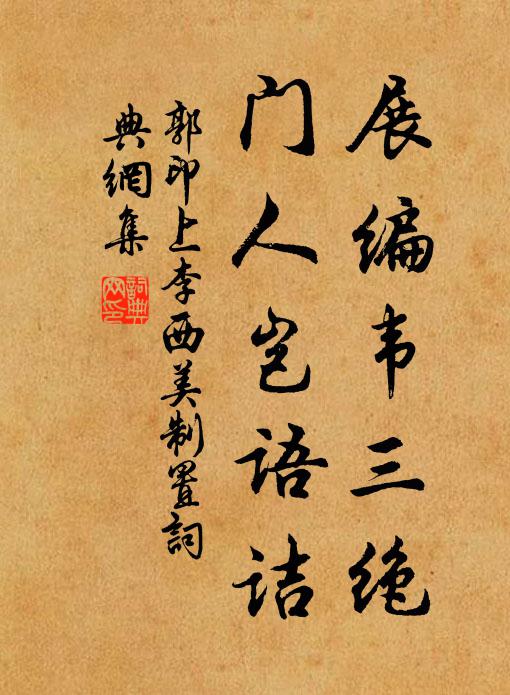 展编韦三绝
门人岂语诘
郭印上李西美制置词
典網集
詞典
网印